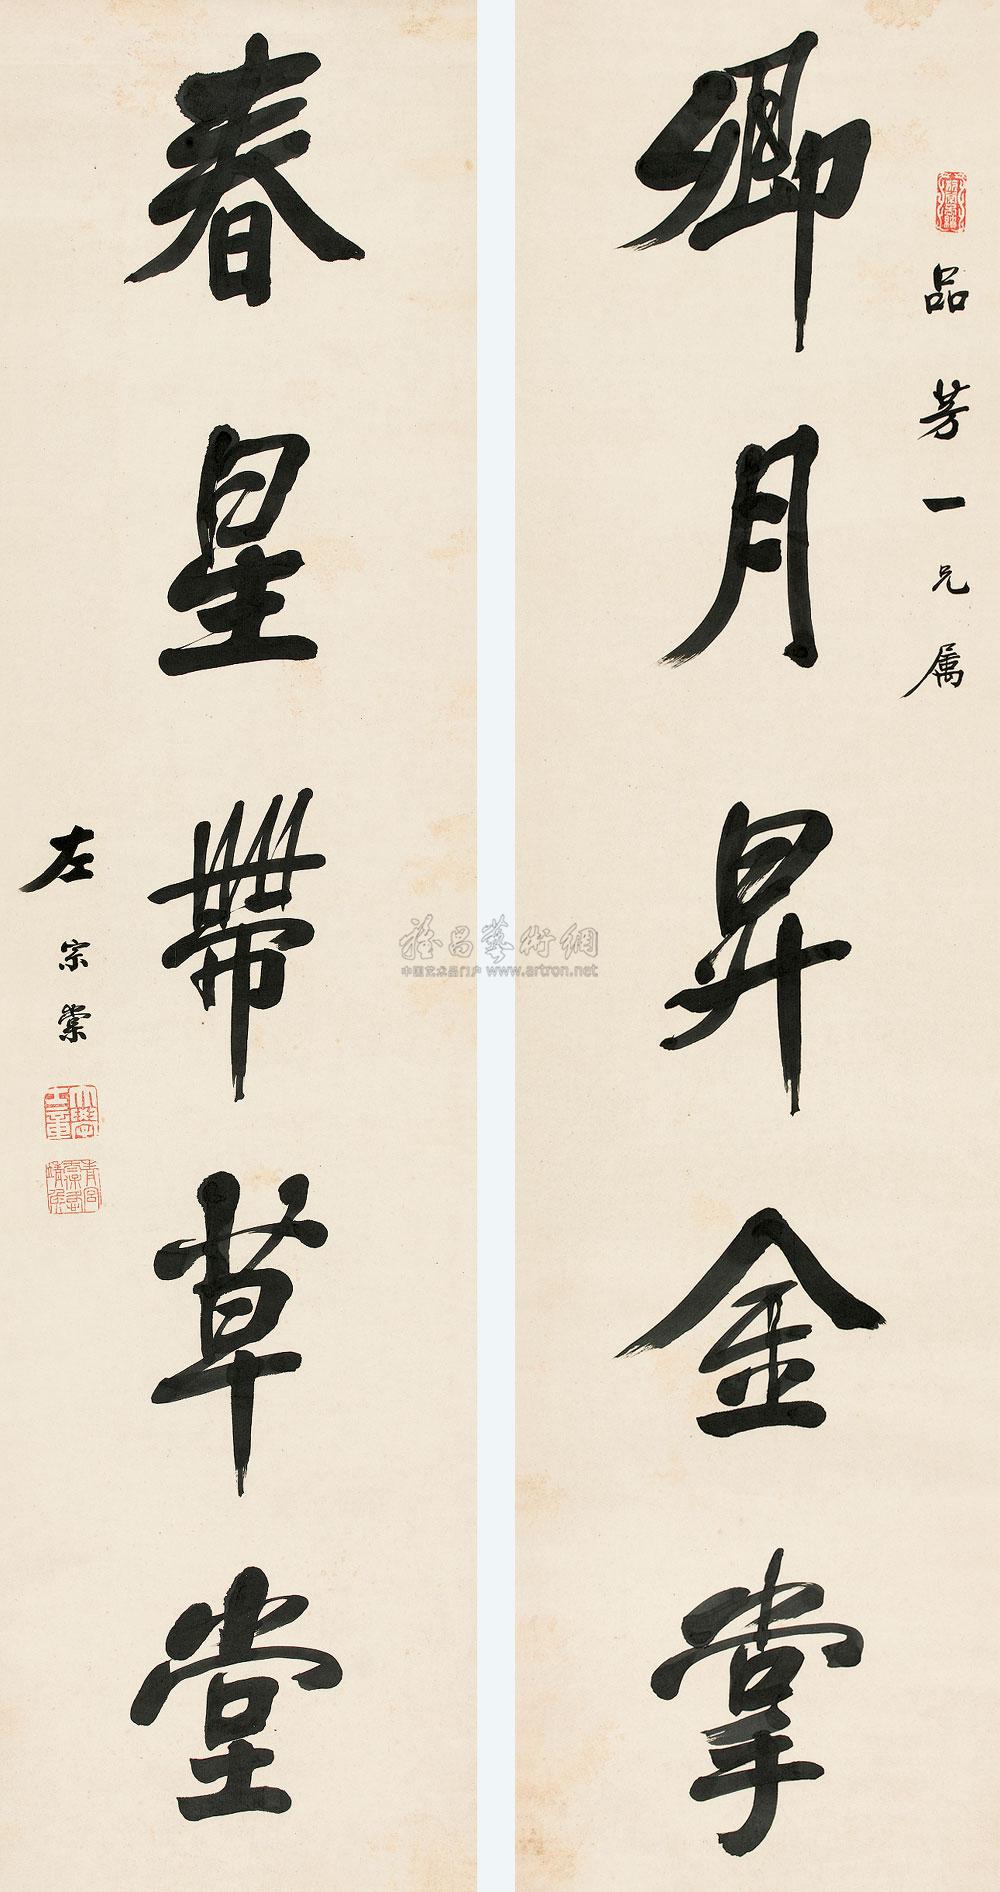 品芳一兄属
卿月昇金掌
春星帶草堂
左宗棠
雅昌藝術網
中国艺术品门户 www.artron.net